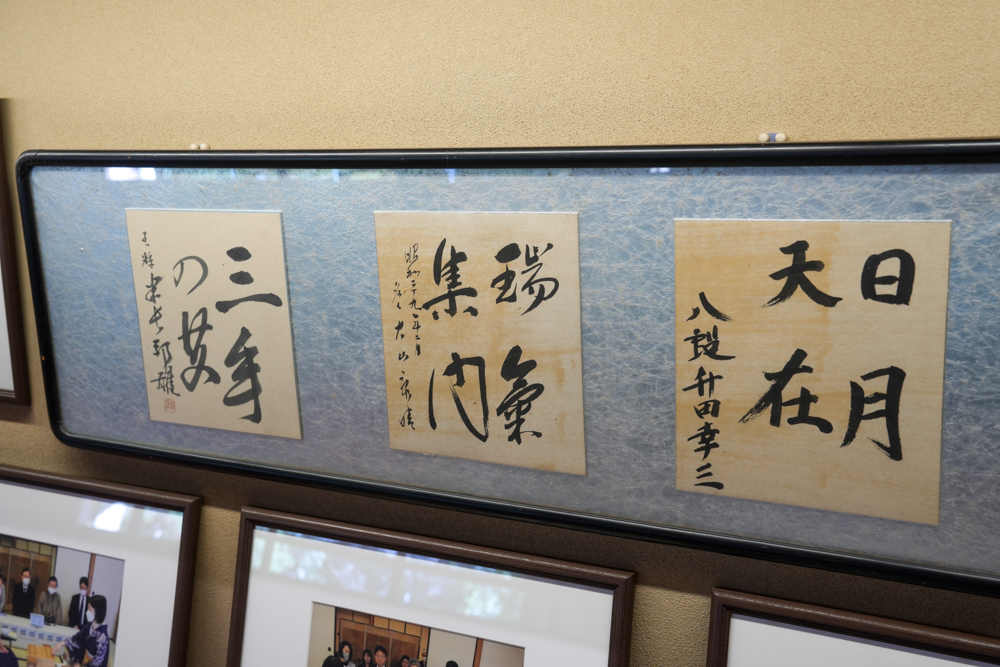 日月
天在
八段升田幸三
瑞氣
集門
昭和二十九年
名人 大山康晴
三年
の艾
米長邦雄